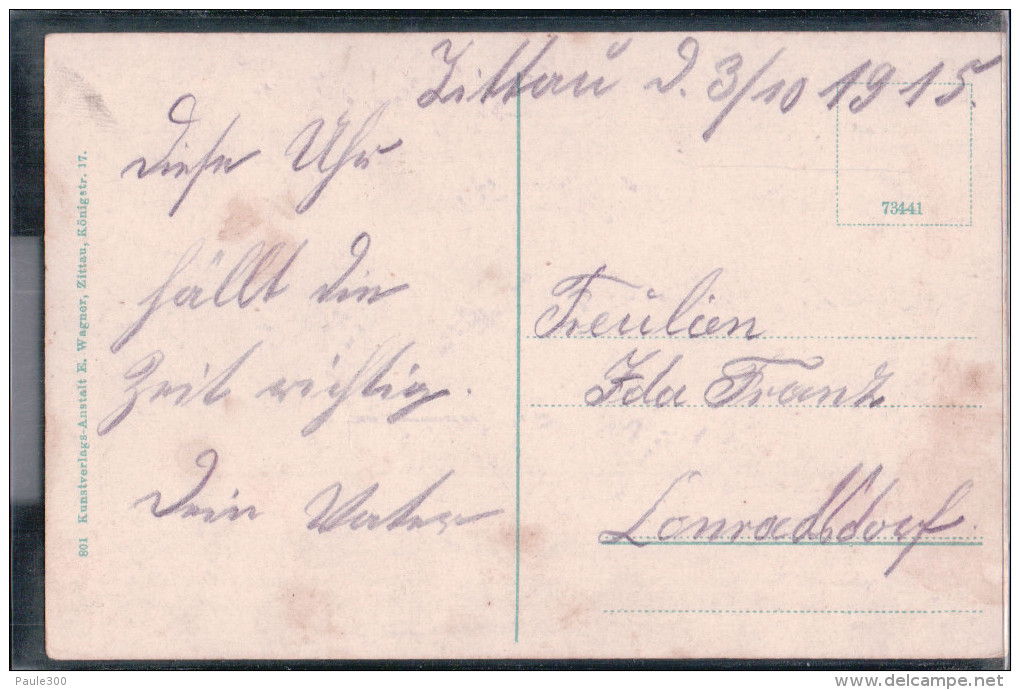 Zittau d. 3/10 1915.
Diese Uhr
hällt die
Zeit richtig.
Dein Vater
73441
Freulien
Ida Franz
Conradsdorf
801 Kunstverlags-Anstalt E. Wagner, Zittau, Königstr. 17.
Paule300
delcampe.net